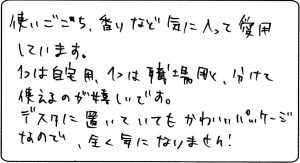 使いごごち、香りなど気に入って愛用
しています。
1つは自宅用、1つは職場用と、分けて
使えるのが嬉しいです。
デスクに置いていてもかわいいパッケージ
なので、全く気になりません!